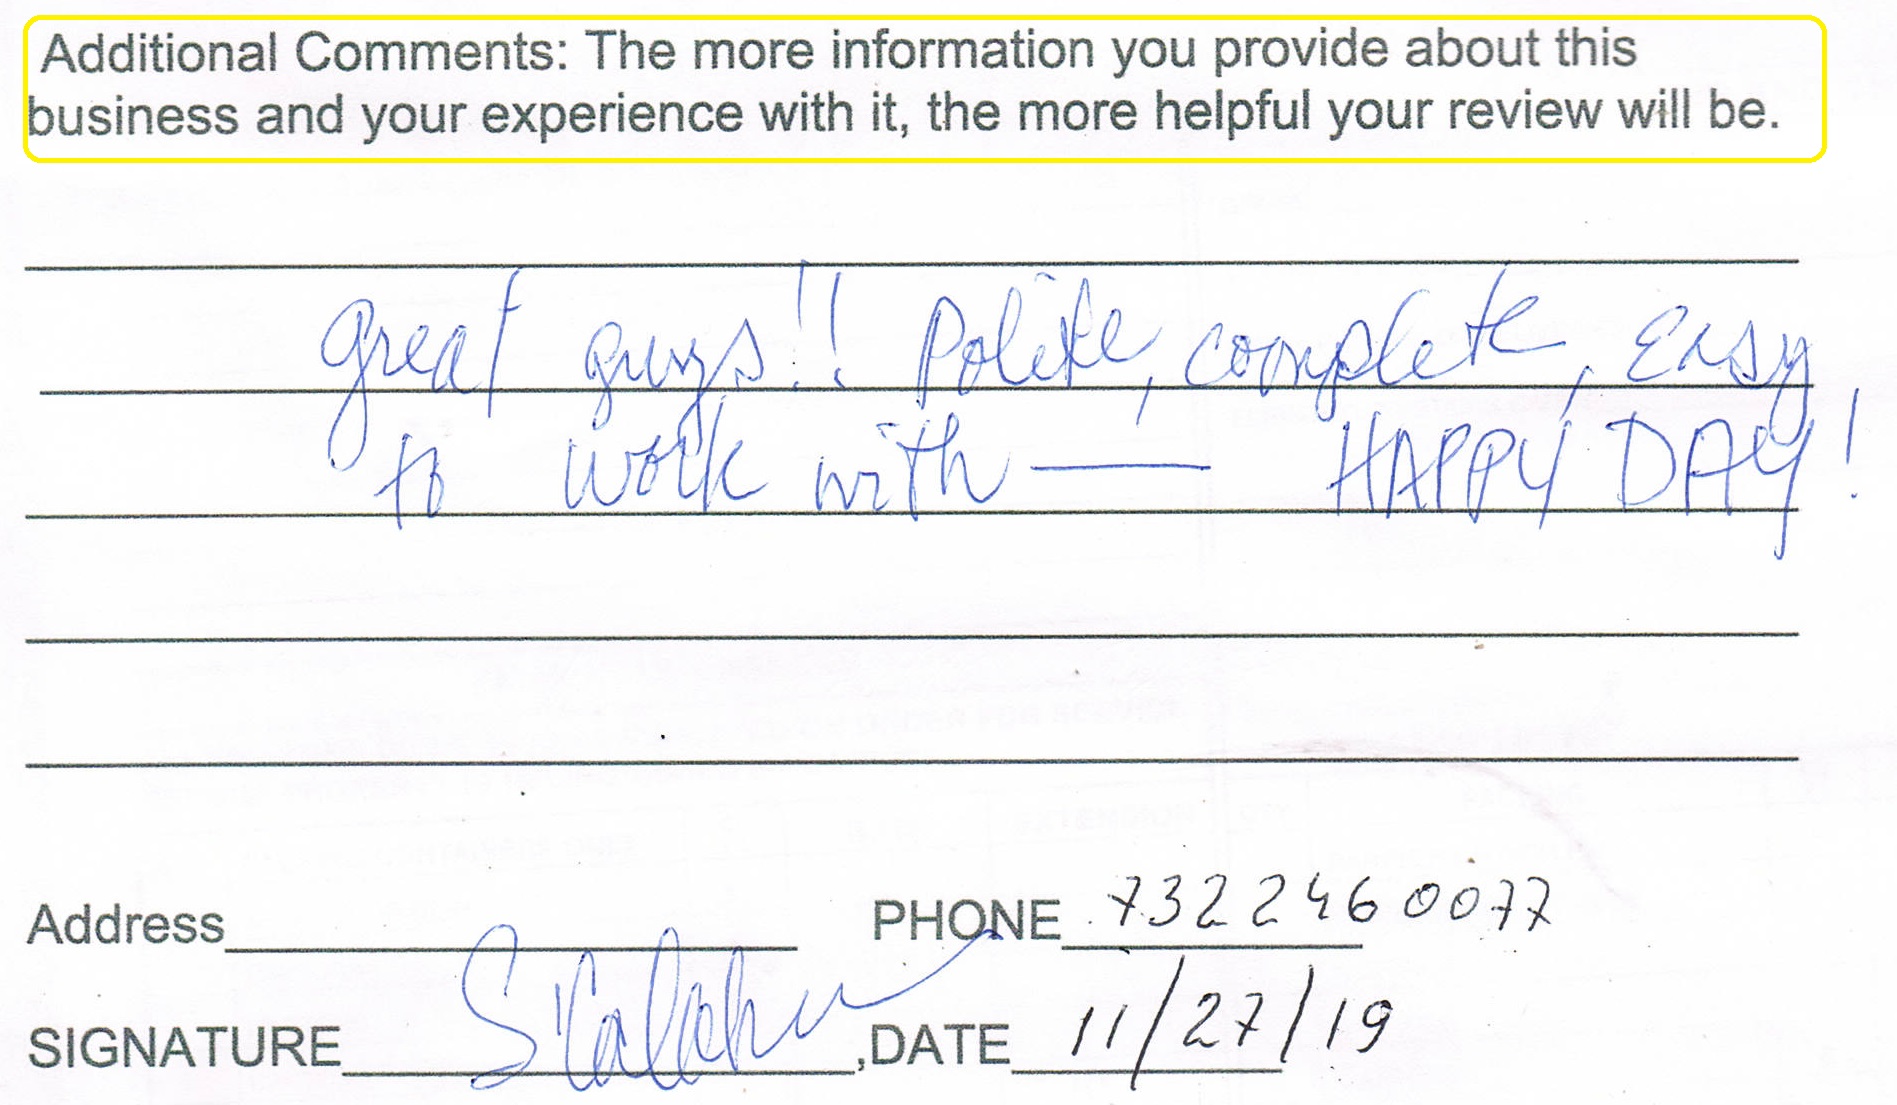 Additional Comments: The more information you provide about this
business and your experience with it, the more helpful your review will be.
great guys!! Polite, complete, Easy
to work with — HAPPY DAY!
Address PHONE 7322460077
SIGNATURE ,DATE 11/27/19